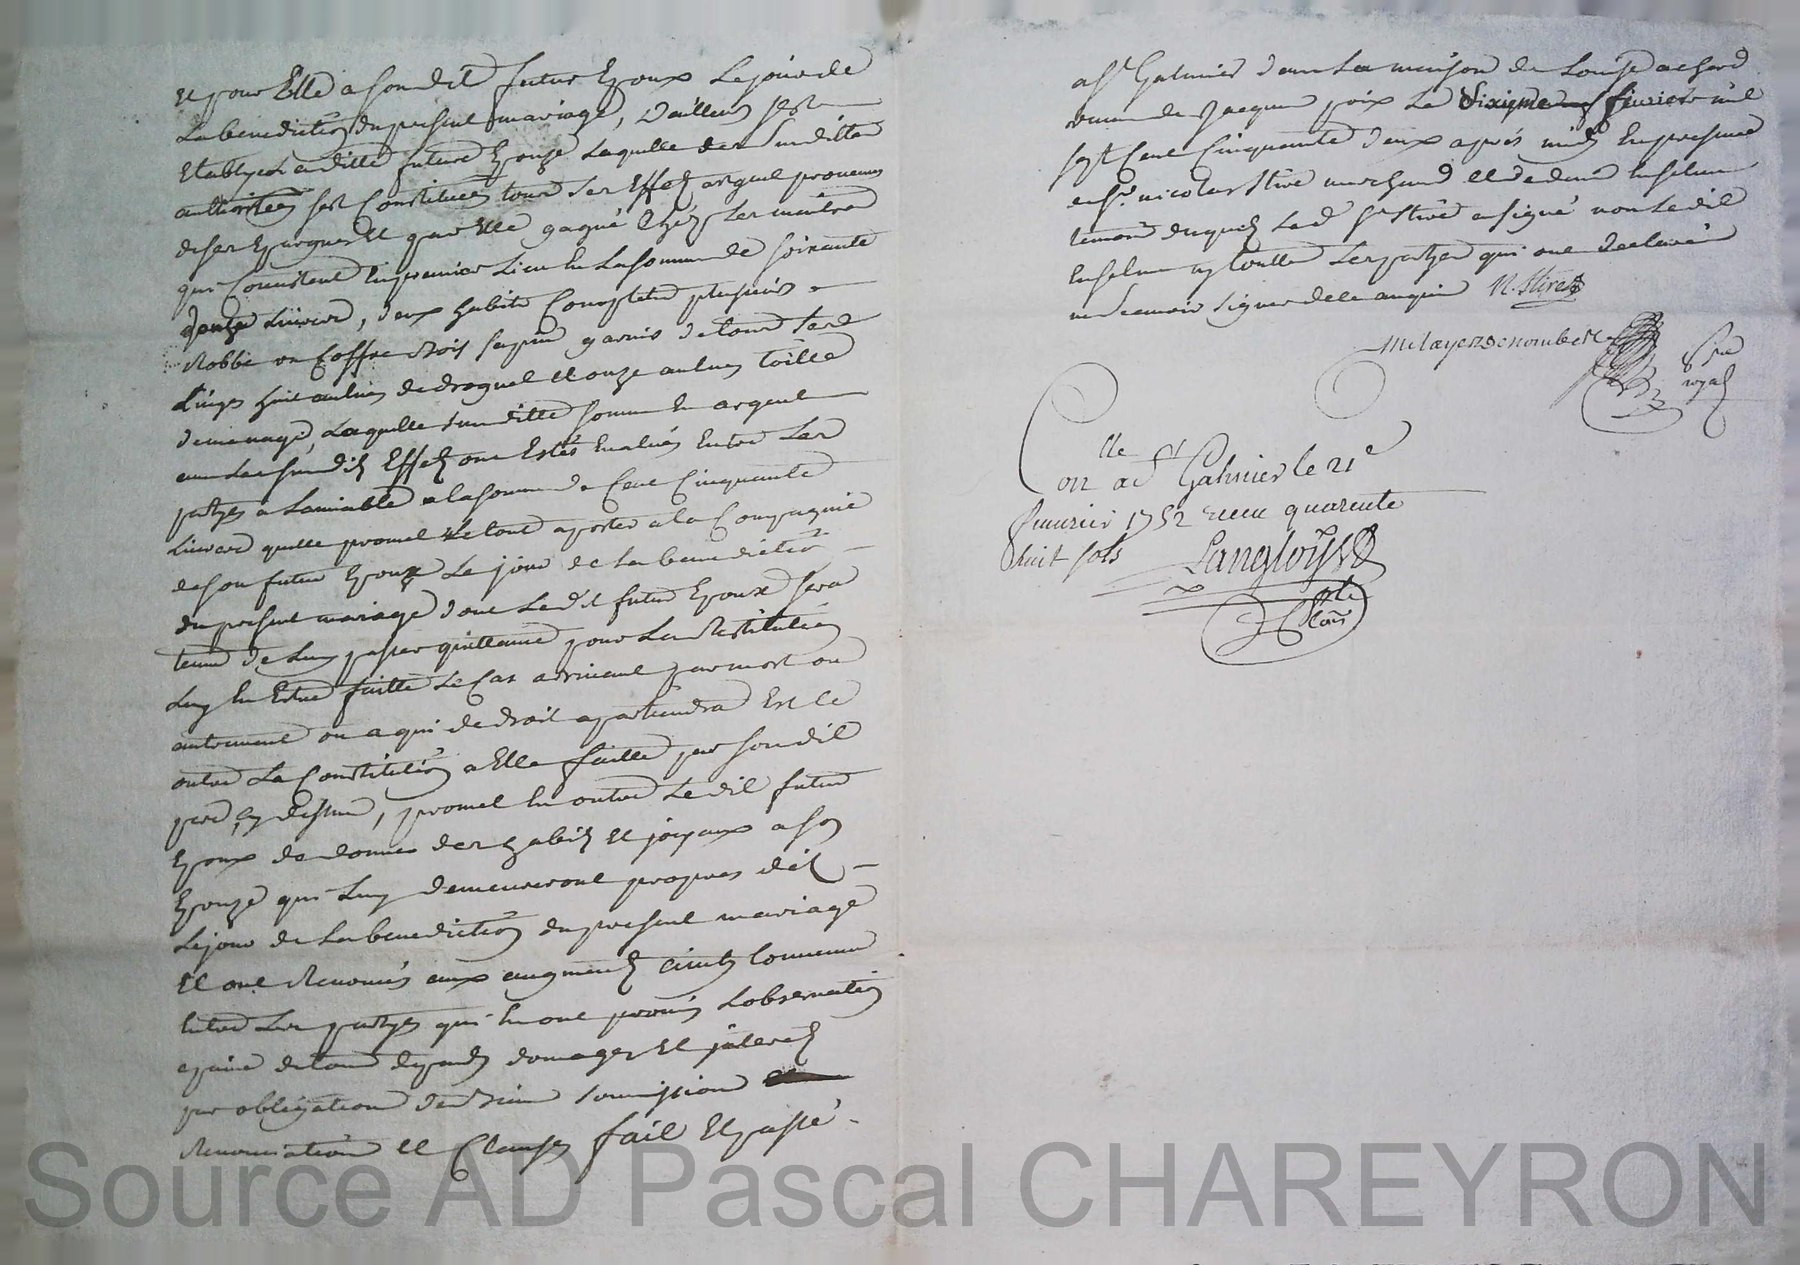 et pour Elle a son dit futur Epoux Le jour de
La benediction du present mariage, D'ailleurs s'est
Etablye Laditte future Epouze Laquelle des susdittes
authorités s'est Constituée tous ses Effets, argent provenus
de ses Epargnes et par Elle gagné chez ses maitres
qui Consistent En premier Lieu En La somme de soixante
Livres, deux habits Complets plusieurs
Robbe un Coffre Bois sapin garnis de tous ses
Linges huit aulnes de droguet et onze aulnes toille
de menage, Laquelle susditte somme En argent
avec Les susdits Effets ont Estés Evalués Entre Les
partyes a Lamiable a la somme de Cent Cinquante
Livres quelle promet Le tout aporter a la Compagnie
de son futur Epoux Le jour de La benediction
du present mariage dont Ledit futur Epoux sera
tenu de Luy passer quittance pour La Restitution
Luy En Estre faitte Le Cas arrivant par mort ou
autrement ou a qui de droit apartiendra Et ce
outre La Constitution a Elle faitte par son dit
pere cy dessus, promet En outre Ledit futur
Epoux de donner des habits et joyaux a son
Epouze qui Luy demeureront propres dez
Le jour de La benediction du present mariage
Et ont Renoncés aux augments Convenu
Entre Les partyes qui En ont promis Lobservation
a peine de tous depends domages et interets
par obligation de soumission
Renonciation et Clauses fait Et passé
a St Galmier dans La maison de Louise achard
veuve de Jacques Le dixiyme fevrier mil
sept Cent Cinquante deux après midy En presence
de Sr nicolas Stive marchand et de
temoins Lesd Sr Stive a signé non Ledit
ny touttes Les partyes qui ont declarés
ne scavoir signer de ce anquis N. Stive
not
royal
Conlle a St Galmier le 21e
fevrier 1752 recu quarente
huit sols Langloys